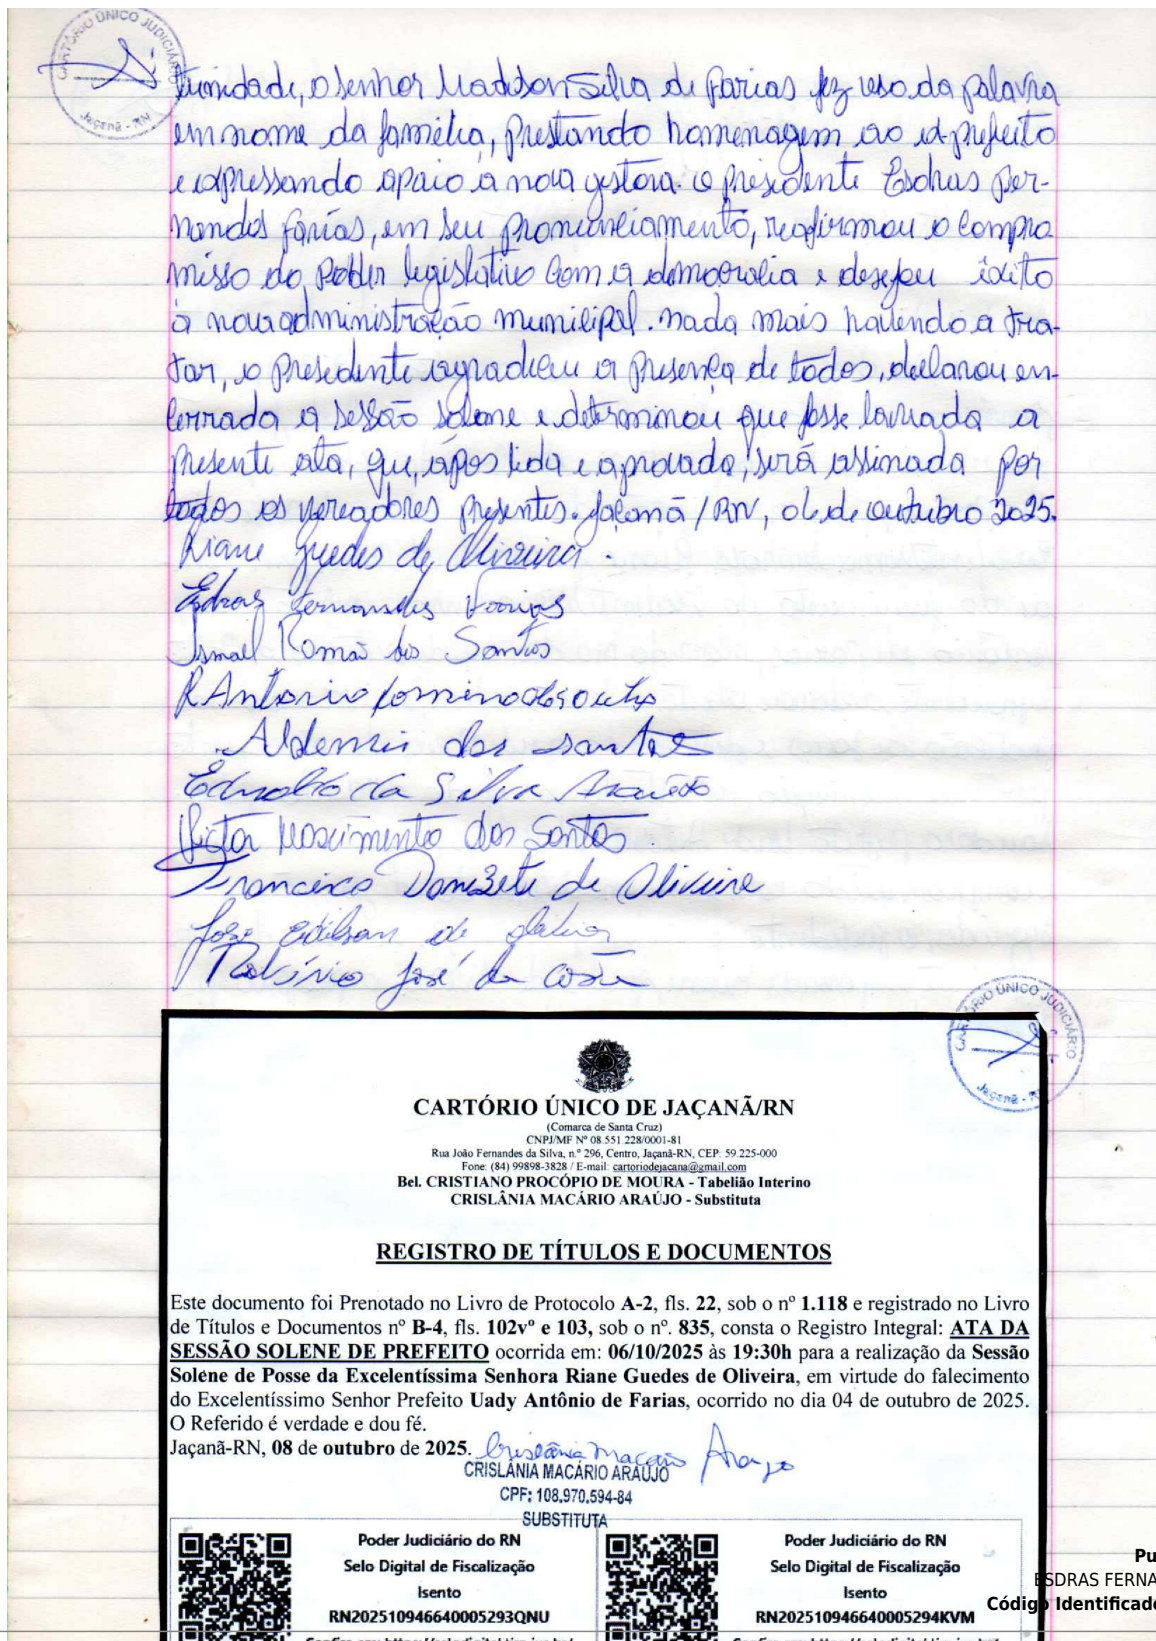 CARTÓRIO ÚNICO JUDICIÁRIO
Jaçanã - RN
tunidade, o senhor Uadison Silva de Farias fez uso da palavra
em nome da família, prestando homenagem ao ex-prefeito
e expressando apoio à nova gestora. O presidente Esdras Fer-
nandes Farias, em seu pronunciamento, reafirmou o compro
misso do Poder legislativo com a democracia e desejou êxito
à nova administração municipal. Nada mais havendo a tra-
tar, o presidente agradeceu a presença de todos, declarou en-
cerrada a sessão solene e determinou que fosse lavrada a
presente ata, que, após lida e aprovada, será assinada por
todos os vereadores presentes. Jaçanã/RN, 06 de outubro 2025.
Riane Guedes de Oliveira.
Esdras Fernandes Farias
Ismael Romão dos Santos
R Antonio
Aldemir dos Santos
Ednaldo da Silva Araújo
Victor Nascimento dos Santos
Francisco Donizete de Oliveira
José Edilson de
José da Costa
CARTÓRIO ÚNICO JUDICIÁRIO
Jaçanã - RN
CARTÓRIO ÚNICO DE JAÇANÃ/RN
(Comarca de Santa Cruz)
CNPJ/MF Nº 08.551.228/0001-81
Rua João Fernandes da Silva, n.º 296, Centro, Jaçanã-RN, CEP: 59.225-000
Fone: (84) 99898-3828 / E-mail: cartoriodejacana@gmail.com
Bel. CRISTIANO PROCÓPIO DE MOURA - Tabelião Interino
CRISLÂNIA MACÁRIO ARAÚJO - Substituta
REGISTRO DE TÍTULOS E DOCUMENTOS
Este documento foi Prenotado no Livro de Protocolo A-2, fls. 22, sob o nº 1.118 e registrado no Livro
de Títulos e Documentos nº B-4, fls. 102vº e 103, sob o nº. 835, consta o Registro Integral: ATA DA
SESSÃO SOLENE DE PREFEITO ocorrida em: 06/10/2025 às 19:30h para a realização da Sessão
Solene de Posse da Excelentíssima Senhora Riane Guedes de Oliveira, em virtude do falecimento
do Excelentíssimo Senhor Prefeito Uady Antônio de Farias, ocorrido no dia 04 de outubro de 2025.
O Referido é verdade e dou fé.
Jaçanã-RN, 08 de outubro de 2025. Crislânia Macário Araujo
CRISLÂNIA MACÁRIO ARAÚJO
CPF: 108.970.594-84
SUBSTITUTA
Poder Judiciário do RN
Selo Digital de Fiscalização
Isento
RN202510946640005293QNU
Poder Judiciário do RN
Selo Digital de Fiscalização
Isento
RN202510946640005294KVM
Pu
ESDRAS FERNA
Código Identificado